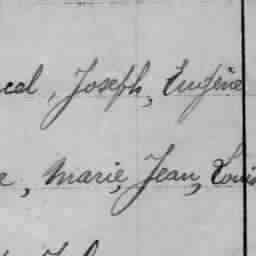 cal, Joseph, Eugène
e, Marie, Jean, Louis